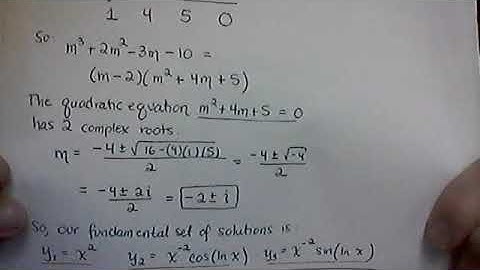 1 4 5 0
So:
m³ + 2m² - 3m - 10 =
(m - 2)(m² + 4m + 5)
The quadratic equation m² + 4m + 5 = 0
has 2 complex roots.
m = (-4 ± √(16 - (4)(1)(5)))/2 = (-4 ± √-4)/2
= (-4 ± 2i)/2 = -2 ± i
So, our fundamental set of solutions is:
y₁ = x² y₂ = x⁻² cos(ln x) y₃ = x⁻² sin(ln x)